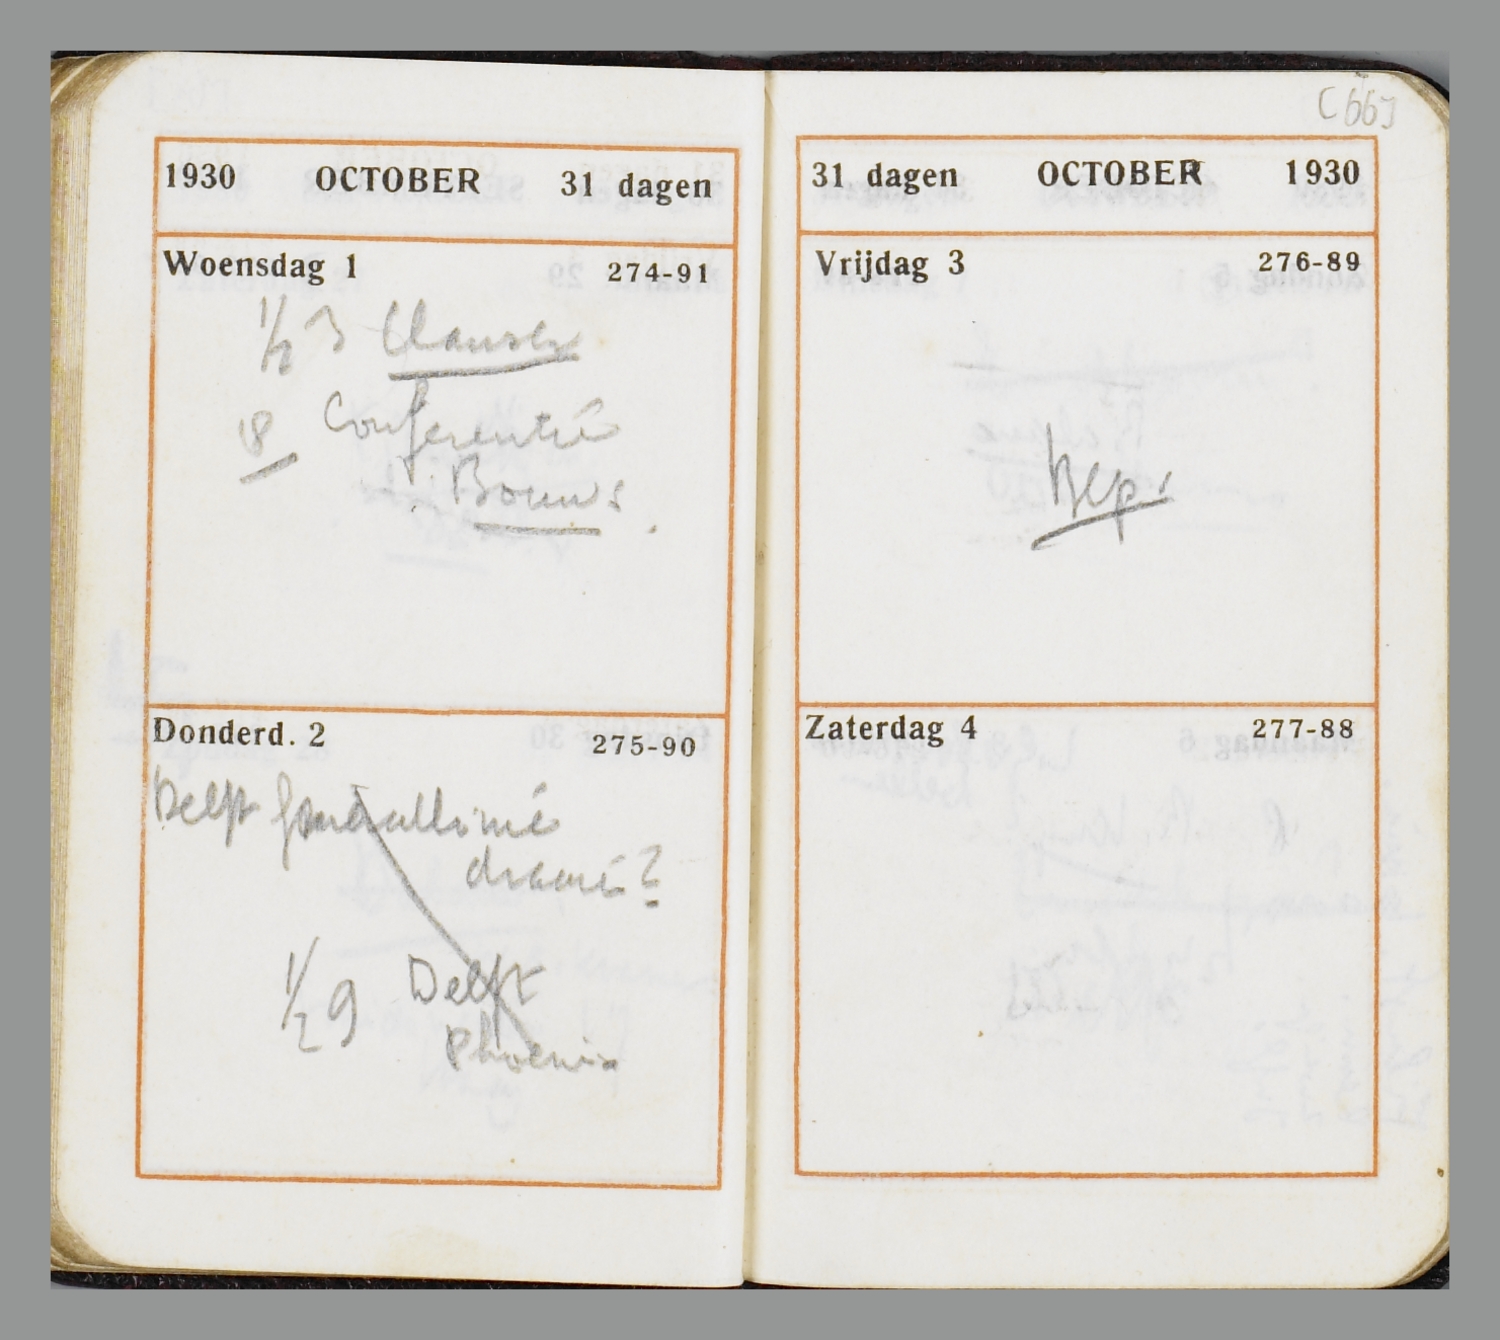 1930 OCTOBER 31 dagen
Woensdag 1 274-91
1/2 3 Clausen
18 Conferentie
Bouws.
Donderd. 2 275-90
Delft
drame?
1/2 9 Delft
Phoenix
C663
31 dagen OCTOBER 1930
Vrijdag 3 276-89
Bep.
Zaterdag 4 277-88